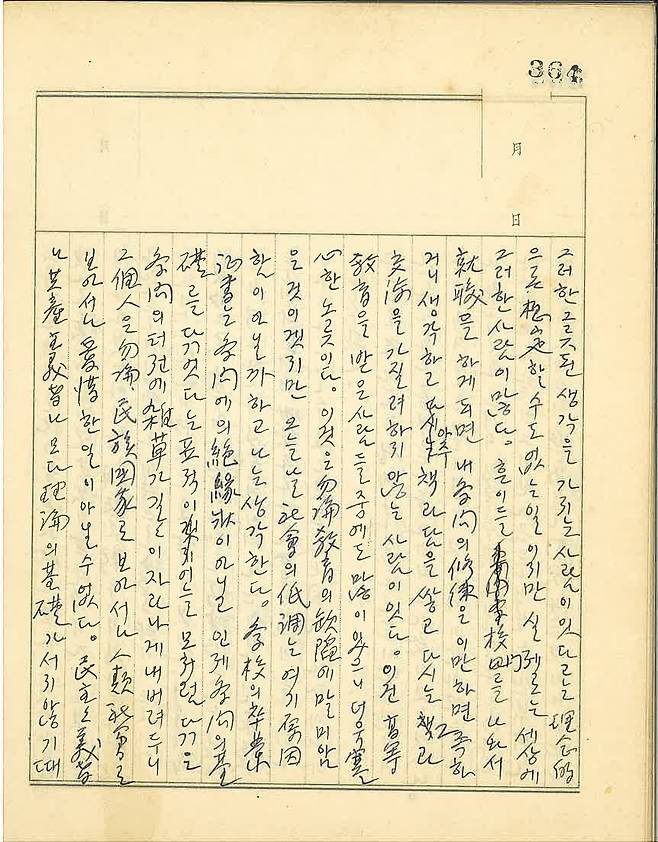 364
月
日
그러한 그릇된 생각을 가지는 사람이 있다고는 理念的
으로 想定할 수도 없는 일이지만 실제로는 세상에
그러한 사람이 많다. 흔이들 學校 門를 나와서
就職을 하게 되면 내 學問의 修練을 이만하면 족하
거니 생각하고 아주 책과 담을 쌓고 다시는 책과
交涉을 가질려 하지 않는 사람이 있다. 이건 高等
敎育을 받은 사람들 중에도 많이 있으니 더욱 寒
心한 노릇이다. 이것은 勿論 敎育의 缺陷에 말미암
을 것이겠지만 오늘날 社會의 低調는 여기 原因
함이 아닐까 하고 나는 생각한다. 學校의 卒業
證書는 學問에의 絶緣狀이 아닐 인제 學問의 基
礎를 닦었다는 表적이겠거늘 모처럼 닦은
學問의 터전에 雜草가 길길이 자라나게 내버려 두니
그 個人은 勿論 民族國家로 보아서나 人類社會로
보아서나 愛惜한 일이 아닐 수 없다. 民主主義者
나 共産主義者나 모다 理論의 基礎가 서지 않기 때